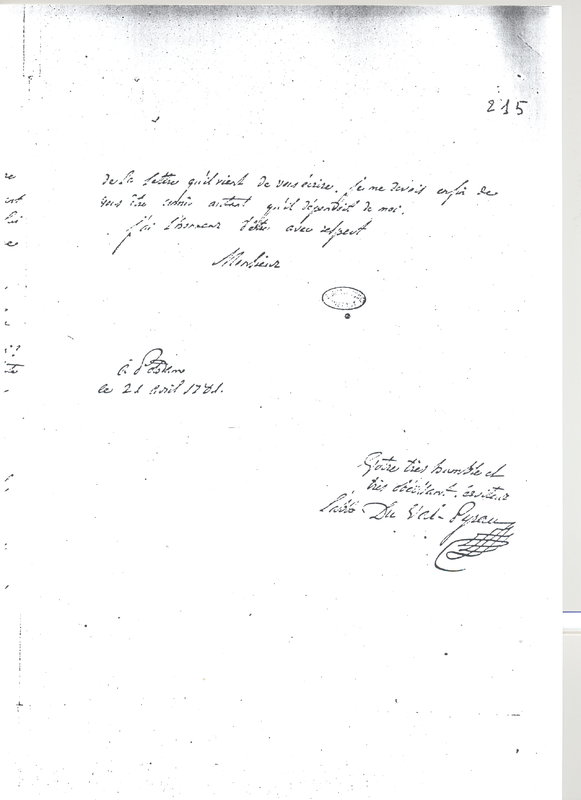 215
de la lettre qu'il vient de vous écrire. Je me devois enfin de
vous être utile autant qu'il dépendoit de moi.
J'ai l'honneur d'être avec respect
Monsieur
à Potsdam
le 21 avril 1781.
Votre très humble et
très obéissant serviteur
L'abbé Du Val-Pyrau